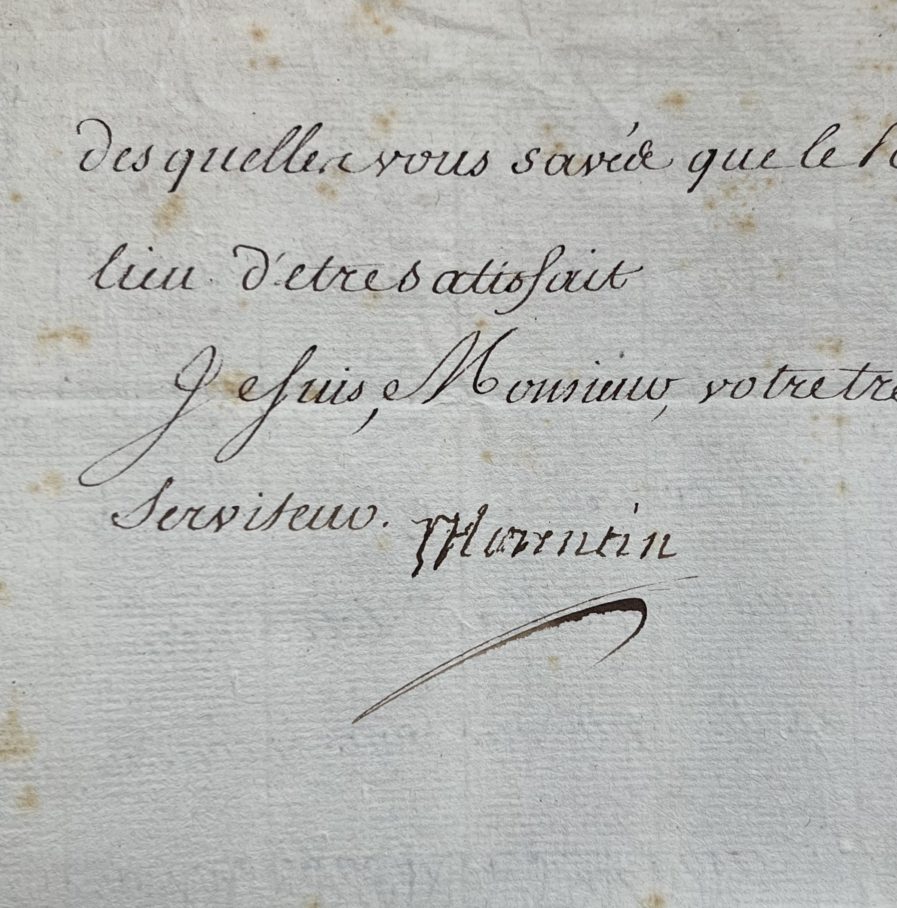 desquelles vous savés que le
lieu d'etre satisfait
Je suis, Monsieur, votre
serviteur.